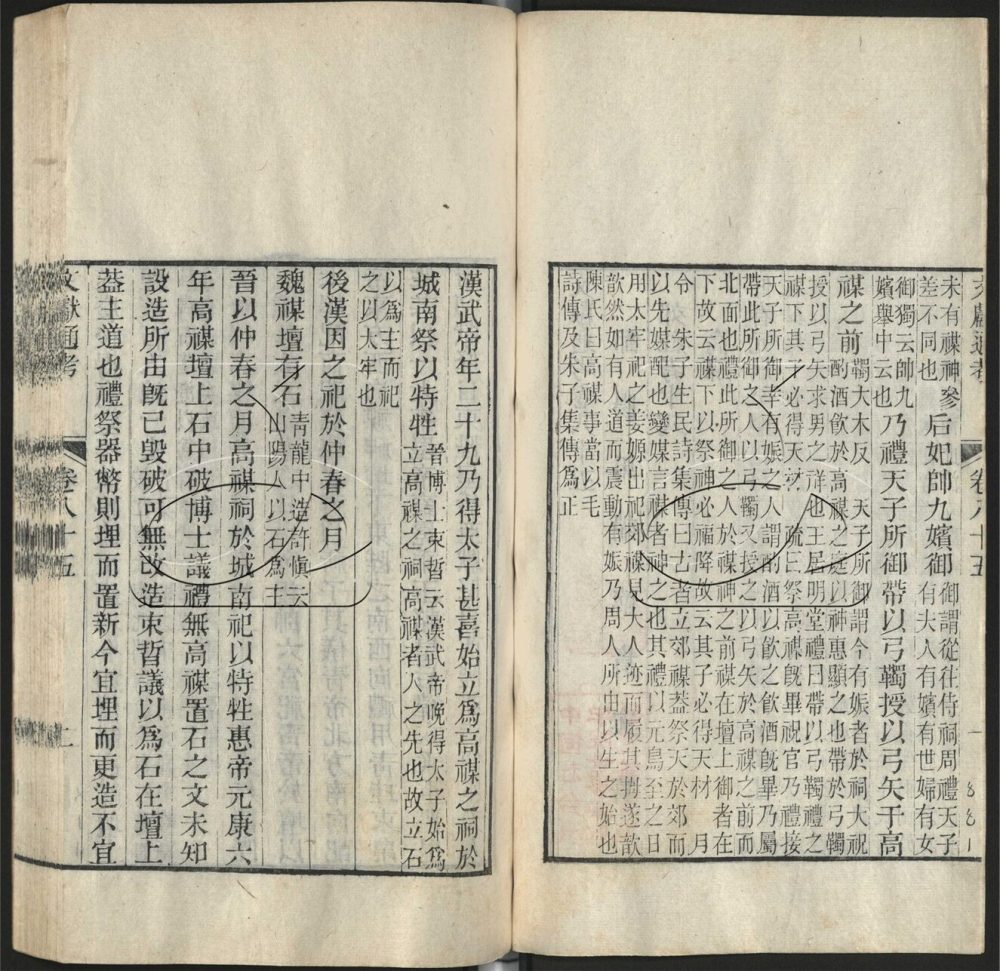 文獻通考 卷八十五 一
未有禖神參
差不同也
后妃帥九嬪御
御謂從往侍祠周禮天子
有夫人有嬪有世婦有女
御獨云帥九
嬪舉中云也
乃禮天子所御帶以弓韣授以弓矢于高
禖之前
韣大木反 天子所御謂今有娠者於祠大祝
酌酒飲於高禖之庭以神惠顯之也帶於弓韣
授以弓矢求男之祥也王居明堂禮曰帶以弓韣禮之
禖下其子必得天材 疏曰祭高禖既畢祝官乃禮接
天子所御幸有娠之人謂酌酒以飲之飲酒既畢乃屬
帶此所御之人以弓韣又授之以弓矢於高禖之前而
北面也禮此所御之人於禖神之前禖在壇上御者在
下故云禖下以祭神必福降故云其子必得天材 月
令 朱子生民詩集傳曰古者立郊禖蓋祭天於郊而
以先媒配也變媒言禖者神之也其禮以元鳥至之日
用太牢祀之姜嫄出祀郊禖見大人迹而履其拇遂歆
歆然如有人道而震動有娠乃周人所由以生之始也
陳氏曰高禖事當以毛
詩傳及朱子集傳為正
漢武帝年二十九乃得太子甚喜始立為高禖之祠於
城南祭以特牲
晉博士束晳云漢武帝晚得太子始為
立高禖之祠高禖者人之先也故立石
以為主而祀
之以太牢也
後漢因之祀於仲春之月
魏禖壇有石
青龍中造許慎云
山陽人以石為主
晉以仲春之月高禖祠於城南祀以特牲惠帝元康六
年高禖壇上石中破博士議禮無高禖置石之文未知
設造所由既已毀破可無改造束晳議以為石在壇上
蓋主道也禮祭器幣則埋而置新今宜埋而更造不宜
文獻通考 卷八十五